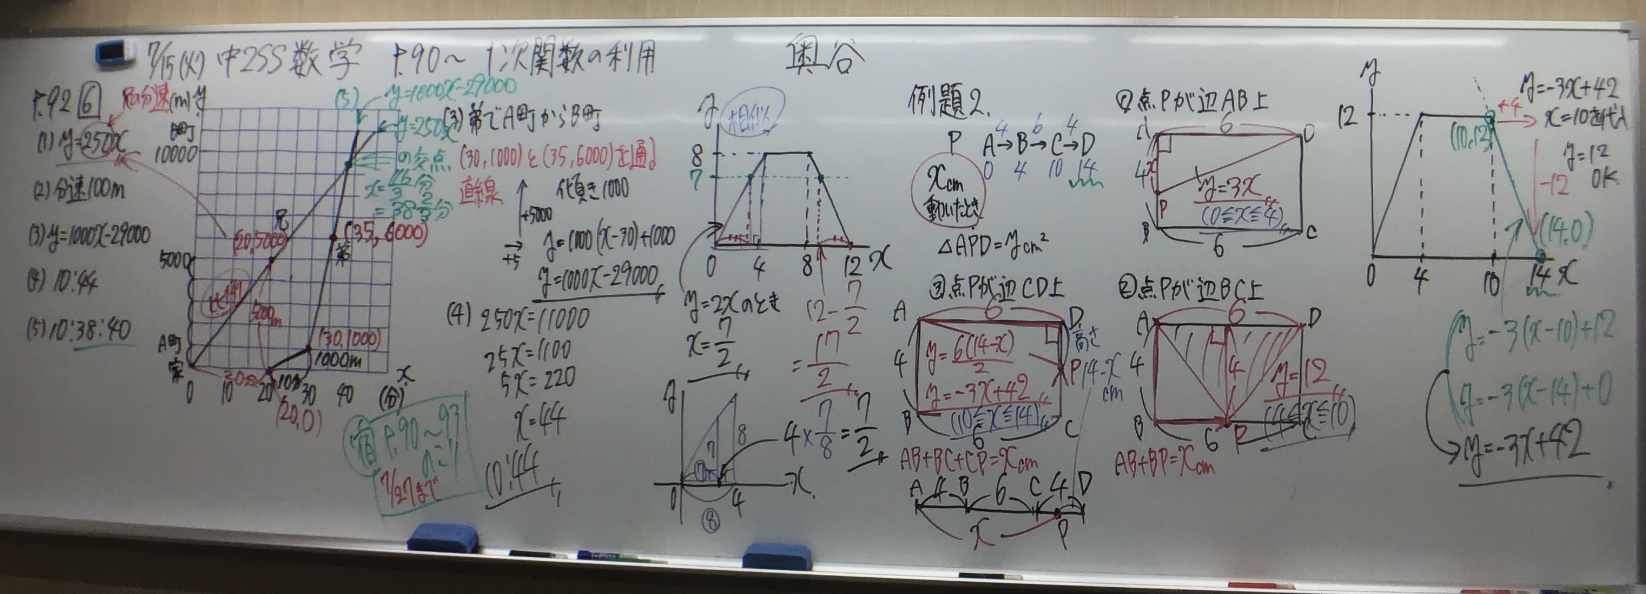 7/15(火) 中2SS数学 P.90～ 1次関数の利用 奥谷
P.92 6
(1) y=250x
(2) 分速100m
(3) y=1000x-29000
(4) 10:44
(5) 10:38:40
(m) y
B町
10000
5000
A町
0 10 20 30 40 (分)
x
(20,5000)
兄
(35,6000)
弟
(30,1000)
1000m
(20,0)
5000m
(5) y=1000x-29000
y=250x
の交点
(3) 弟でA町からB町
(30,1000)と(35,6000)を通る
直線
傾き1000
+5000
+5
y=1000(x-30)+1000
y=1000x-29000
(4) 250x=11000
25x=1100
5x=220
x=44
10:44
宿 P.90～93
のこり
7/27まで
y
相似
8
7
0 4 8 12 x
y=2xのとき
x=7/2
12-7/2
=17/2
y
7 8
0 4 x
⑧
4×7/8=7/2
例題2.
P A→B→C→D
4 6 4
0 4 10 14
xcm
動いたとき
△APD=ycm²
①点Pが辺AB上
A 6 D
4
x
P
y=3x
(0≦x≦4)
B 6 C
③点Pが辺CD上
A 6 D
高さ
4
y=6(14-x)/2
y=-3x+42
(10≦x≦14)
P 14-x
cm
B 6 C
AB+BC+CP=xcm
A 4 B 6 C 4 D
x P
②点Pが辺BC上
A 6 D
4 4
y=12
(4≦x≦10)
B 6 P C
AB+BP=xcm
y
12
(10,12)
+4
-12
(14,0)
0 4 10 14 x
y=-3x+42
x=10を代入
y=12
OK
y=-3(x-10)+12
y=-3(x-14)+0
y=-3x+42